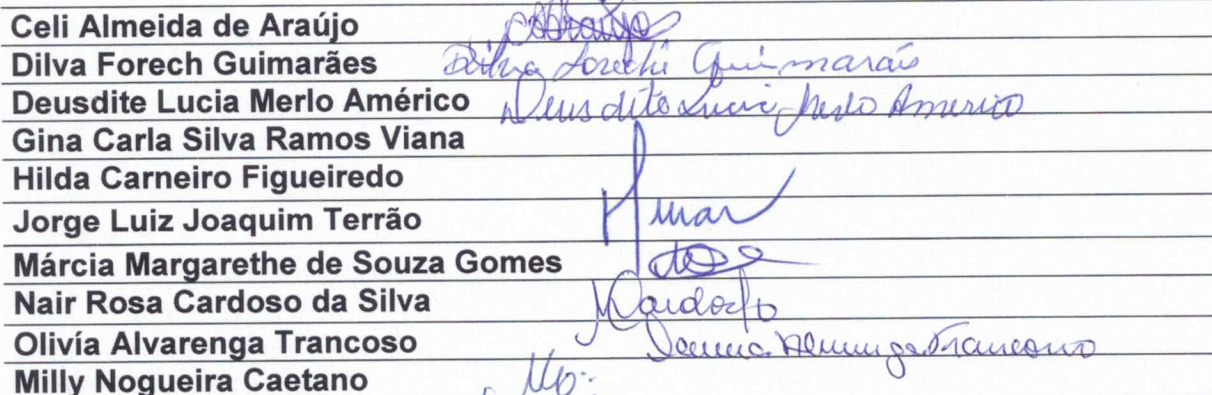 Celi Almeida de Araújo Araújo
Dilva Forech Guimarães Dilva Forechi Guimarães
Deusdite Lucia Merlo Américo Deusdite Lucia Merlo America
Gina Carla Silva Ramos Viana
Hilda Carneiro Figueiredo
Jorge Luiz Joaquim Terrão
Márcia Margarethe de Souza Gomes
Nair Rosa Cardoso da Silva NCardoso
Olivía Alvarenga Trancoso Trancoso
Milly Nogueira Caetano